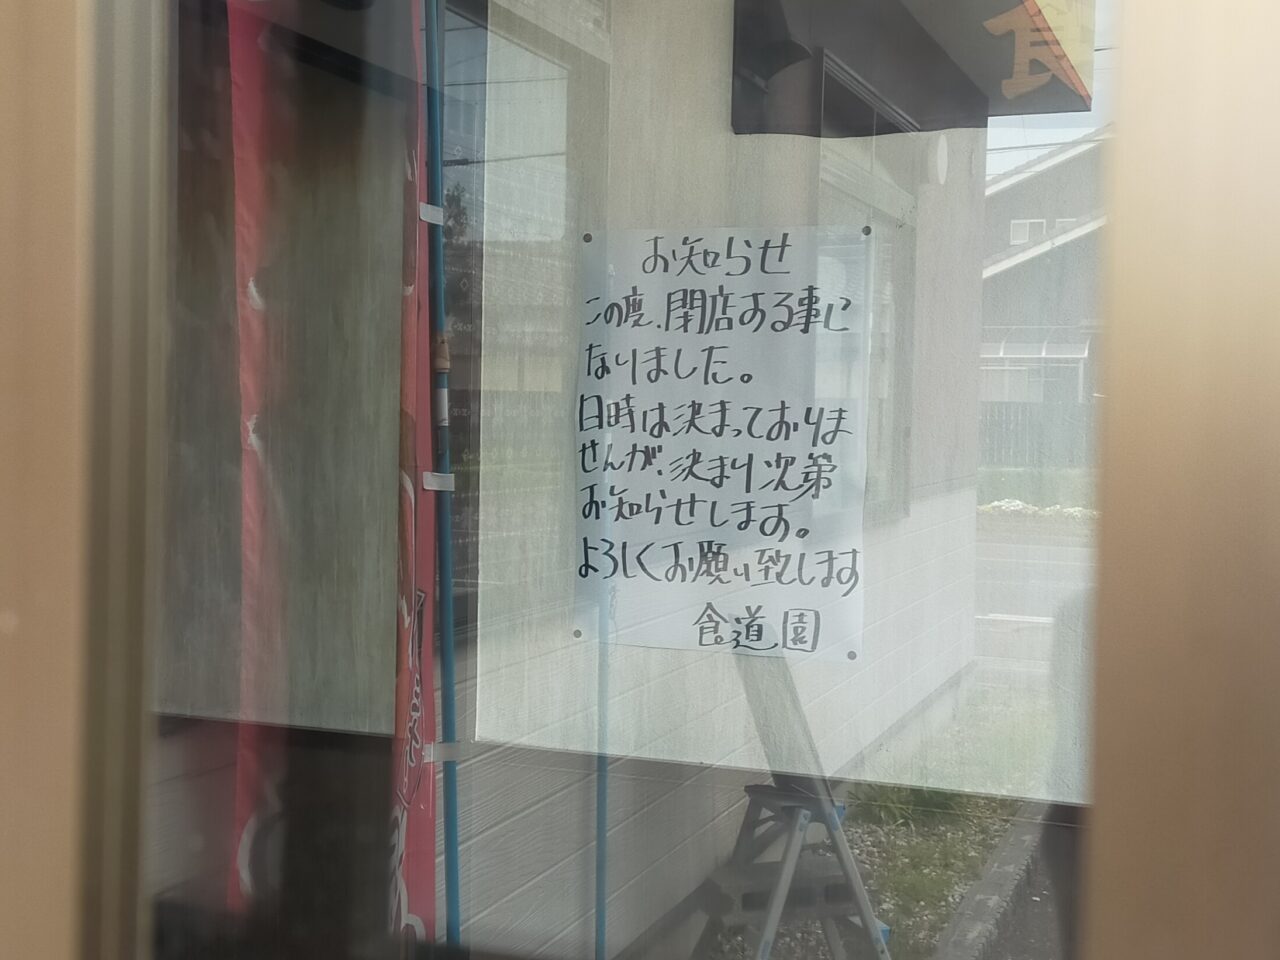 お知らせ
この度、閉店する事に
なりました。
日時は決まっておりま
せんが、決まり次第
お知らせします。
よろしくお願い致します
食道園
食